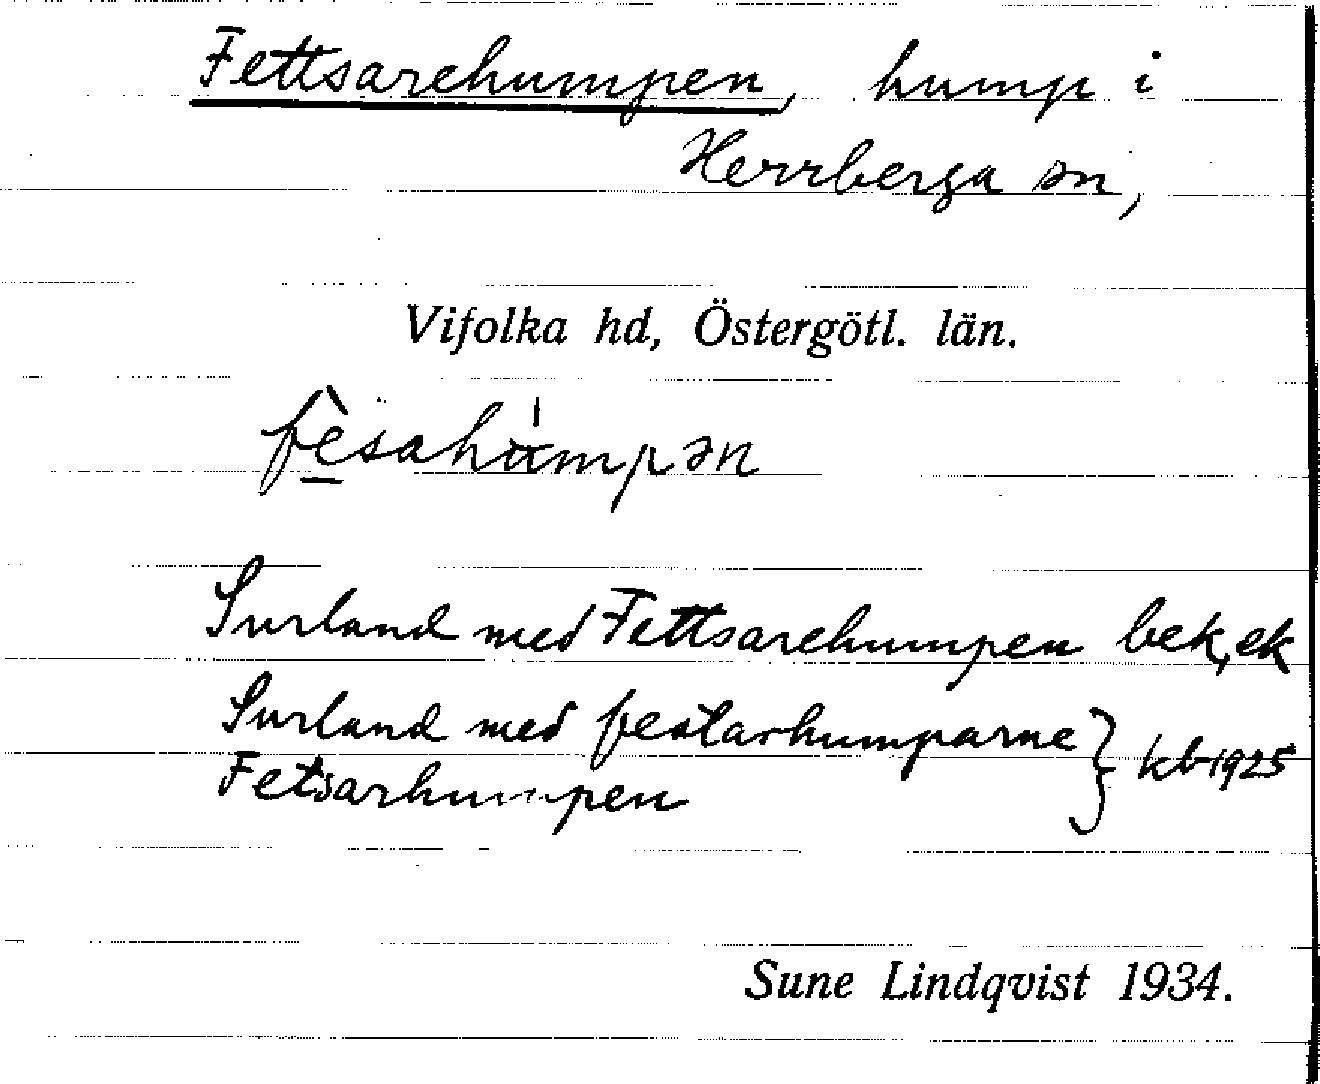 Fettsarehumpen, hump i
Herrberga sn,
Vifolka hd, Östergötl. län.
fè̱sahu̇mpən
Surland med Fettsarehumpen bek, ek
Surland med festarhumparne } kb 1925
Fetsarhumpen
Sune Lindqvist 1934.